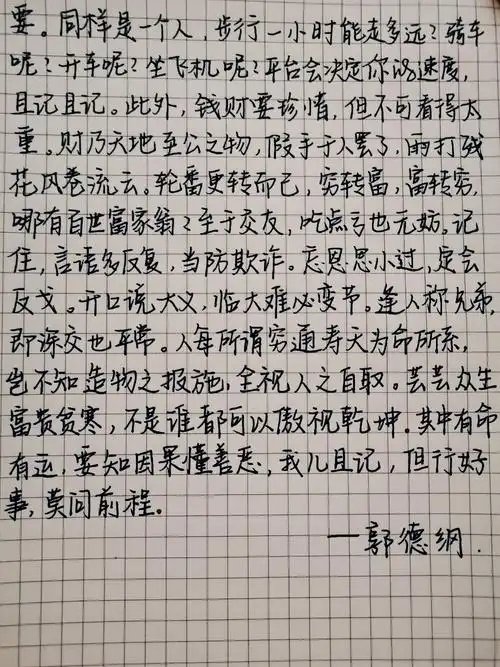 要。同样是一个人，步行一小时能走多远？骑车
呢？开车呢？坐飞机呢？平台会决定你的速度，
且记且记。此外，钱财要珍惜，但不可看得太
重。财乃天地至公之物，假手于人罢了，雨打残
花风卷流云。轮番更转而已，穷转富，富转穷，
哪有百世富家翁？至于交友，吃点亏也无妨。记
住，言语多反复，当防欺诈。忘恩思小过，定会
反戈。开口说大义，临大难必变节。逢人称兄弟，
即深交也平常。人每所谓穷通寿夭为命所系，
岂不知造物之报施，全视人之自取。芸芸众生
富贵贫寒，不是谁都可以傲视乾坤。其中有命
有运，要知因果懂善恶，我儿且记，但行好
事，莫问前程。
——郭德纲.